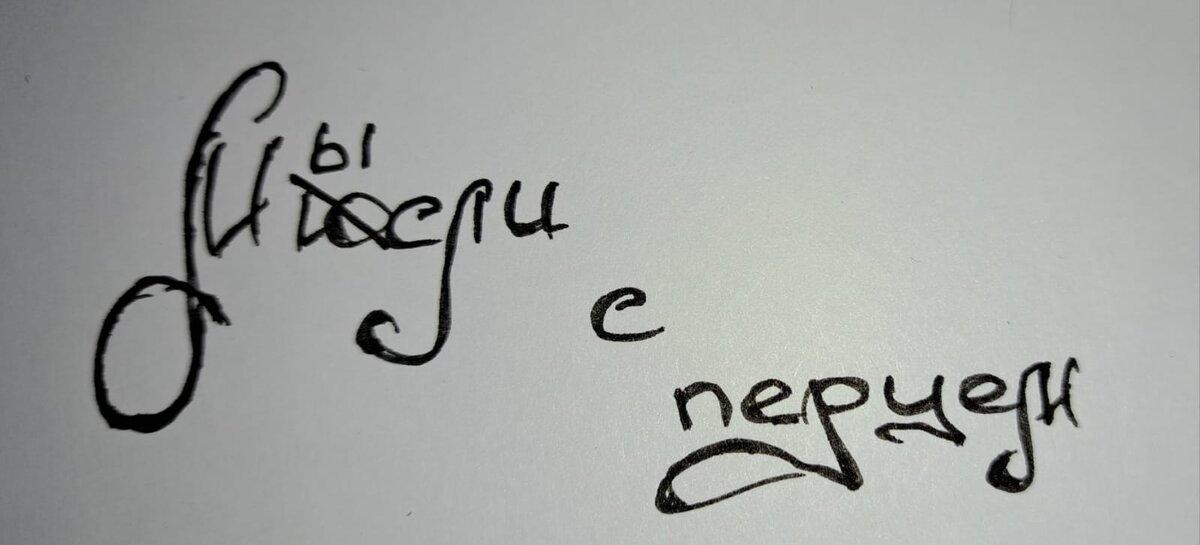 Мысли
с
перцем